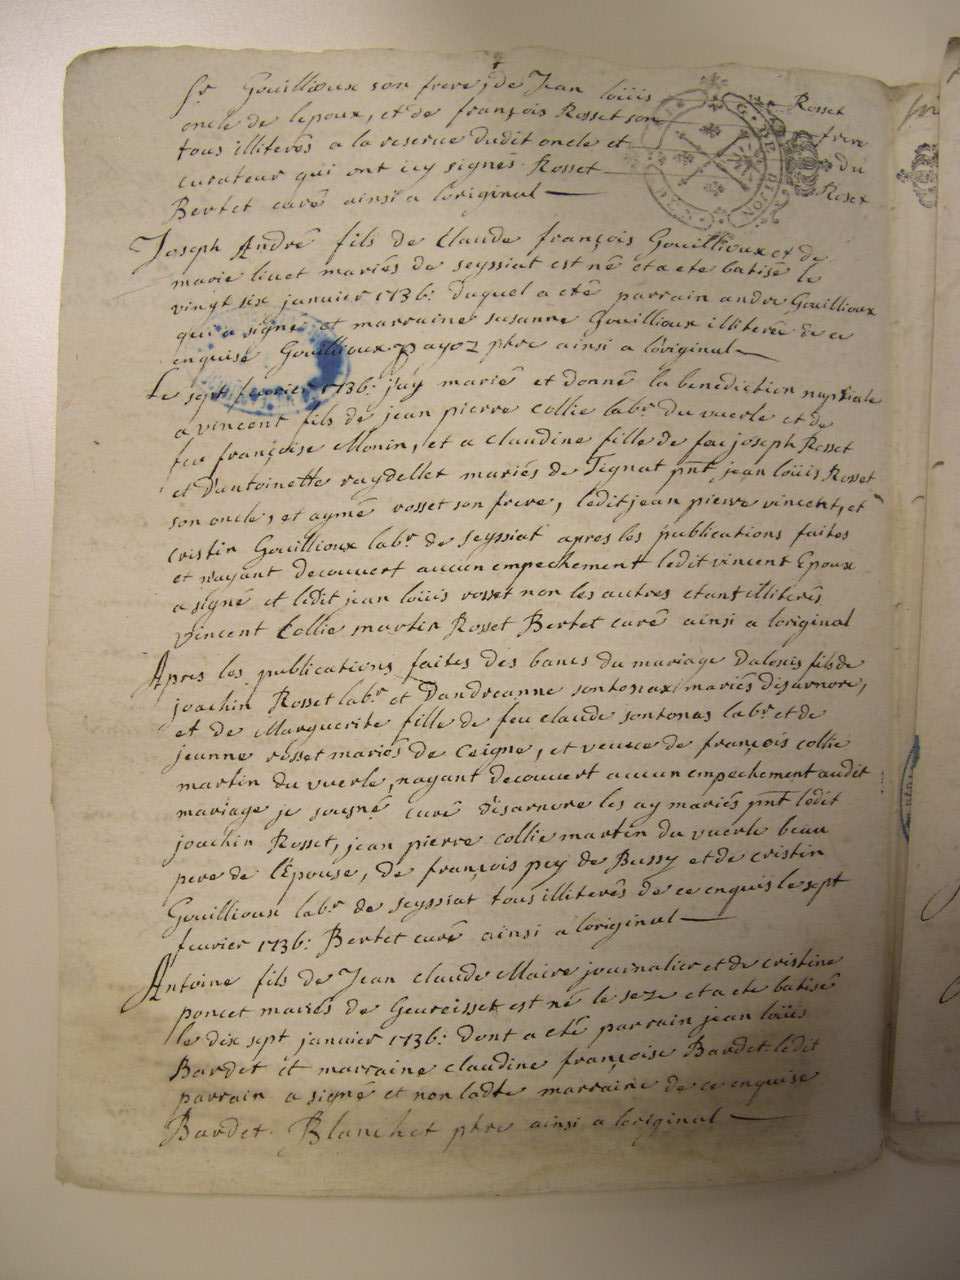 Sr Gouillioux son frere, de Jean loüis Rosset
oncle de lepoux, et de françois Rosset son frere
tous illiterés a la reserve dudit oncle et du
curateur qui ont icy signés Rosset Roset
Bertet curé ainsi a loriginal
G. DE DIJON
Joseph André fils de Claude françois Gouillioux et de
marie livet mariés de seyssiat est né et a ete batisé le
vingt six janvier 1736: duquel a eté parrain andre Gouillioux
qui a signé et marraine susanne Gouillioux illiterée de ce
enquise Gouillioux payoz ptre ainsi a loriginal
Le sept fevrier 1736: j'ay marié et donné la benediction nuptiale
a vincent fils de jean pierre collie labr du vuerle et de
feu françoise Monin, et a claudine fille de feu joseph Rosset
et d'antoinette raydellet mariés de Tignat pnt jean loüis Rosset
son oncle, et aymé rosset son frere, ledit jean pierre vincent, et
cristin Gouillioux labr de seyssiat apres les publications faites
et n'ayant decouvert aucun empechement ledit vincent Epoux
a signé et ledit jean loüis rosset non les autres etant illiterés
vincent Collie martin Rosset Bertet curé ainsi a loriginal
Apres les publications faites des bancs du mariage dalexis fils de
joachin Rosset labr et Dandreanne sontonax mariés disarnore,
et de Marguerite fille de feu claude sontonas labr et de
jeanne rosset mariés de Ceigne, et veuve de françois collie
martin du vuerle, nayant decouvert aucun empechement audit
mariage je sousgné curé disarnore les ay mariés pnt ledit
joachin Rosset, jean pierre collie martin du vuerle beau
pere de l'Epouse, de françois pey de Bussy et de cristin
Gouillioux labr de seyssiat tous illiterés de ce enquis le sept
fevrier 1736: Bertet curé ainsi a loriginal
Antoine fils de Jean claude Maire journalier et de cristine
poncet mariés de Geureisset est né le seze et a ete batisé
le dix sept janvier 1736: dont a eté parrain jean loüis
Bardet et marraine claudine françoise Bardet ledit
parrain a signé et non ladte marraine de ce enquise
Bardet. Blanchet ptre ainsi a loriginal